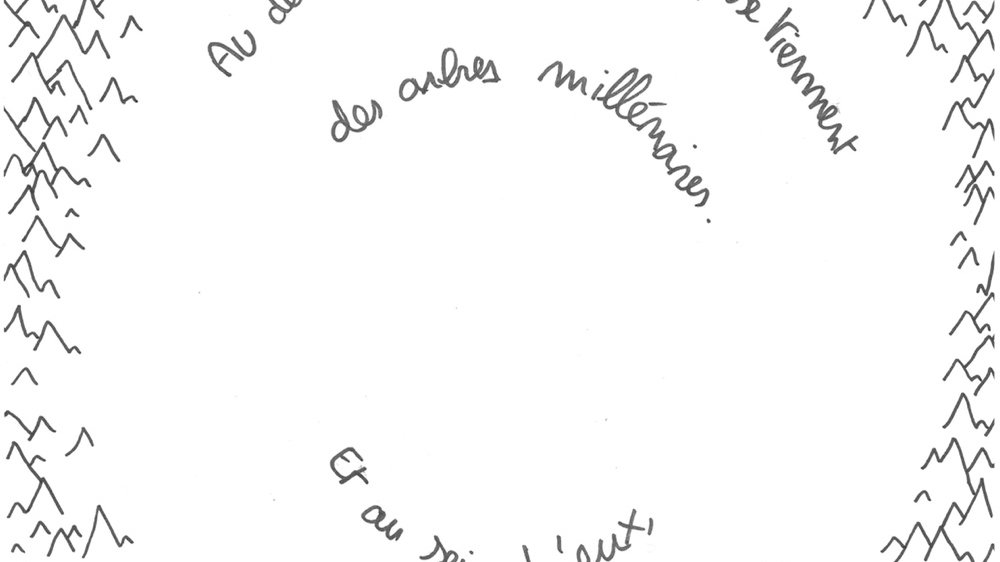 Au de
se tiennent
des arbres millénaires.
Et au sein d'eux,